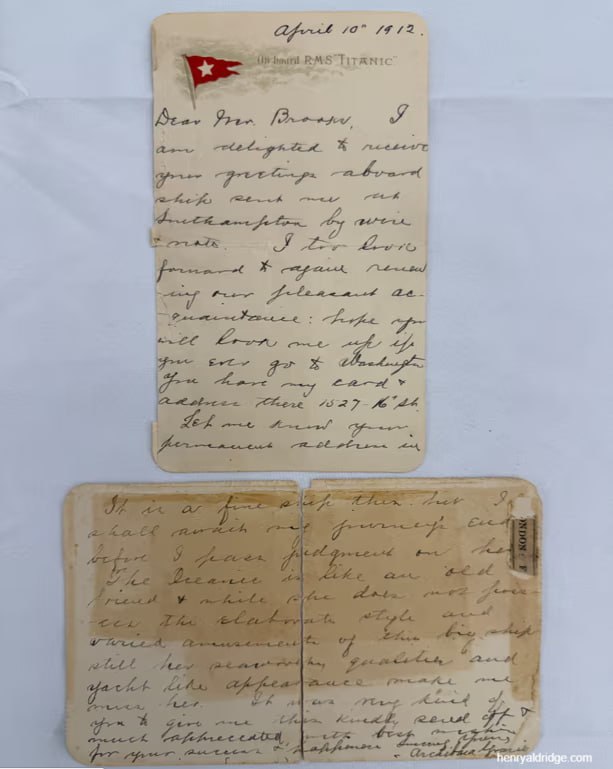 April 10th 1912.
On board R.M.S "TITANIC"
Dear Mr. I
am delighted to receive
your greetings aboard
ship sent me at
Southampton by wire
& note. I too look
forward to again renew
-ing our pleasant ac-
quaintance: hope you
will look me up if
you ever go to Washington
You have my card &
address there 1527-16th St.
Let me know your
permanent address in
It is a fine ship this but I
shall await my journeys end
before I pass judgment on her
The Oceanic is like an old
friend & while she does not poss-
ess the elaborate style and
varied amusements of this big ship
still her seaworthy qualities and
yacht like appearance make me
miss her. It was very kind of
you to give me this kindly send off &
much appreciated with best wishes
for your success & happiness
Archibald Gracie
NDON: F
henryaldridge.com